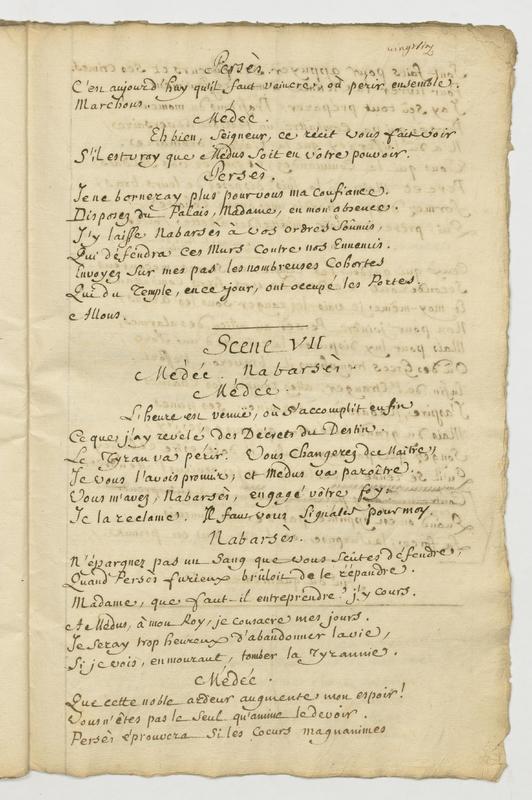 Persès.
C'en aujourd'huy qu'il faut vaincre, où perir ensemble.
Marchons.
Médée.
Eh bien, Seigneur, ce récit vous fait voir
S'il est vray que Médus soit en vôtre pouvoir.
Persès.
Je ne borneray plus pour vous ma confiance.
Disposez du Palais, Madame, en mon absence.
J'y laisse Nabarsès à vos ordres soûmis,
Qui défendra ces Murs contre nos Ennemis.
Envoyez sur mes pas les nombreuses Cohortes
Qui du Temple, en ce jour, ont occupé les Portes.
Allons.
Scene VII
Médée. Nabarsès.
Médée.
L'heure est venüe, où s'accomplit enfin
Ce que j'ay revelé des Décrets du Destin.
Le Tyran va périr. Vous changerez de Maître,
Je vous l'avois promis, et Medus va paroître.
Vous m'avez, Nabarsès, engagé vôtre foy.
Je la reclame. Il faut vous signaler pour moy.
Nabarsès.
N'épargnez pas un Sang que vous sçûtes défendre,
Quand Persès furieux brûloit de le répandre.
Madame, que faut-il entreprendre? j'y cours.
A Médus, à mon Roy, je consacre mes jours.
Je seray trop heureux d'abandonner la vie,
Si je vois, en mourant, tomber la Tyrannie.
Médée.
Que cette noble ardeur augmente mon espoir!
Vous n'êtes pas le seul qu'anime le devoir.
Persès éprouvera si les Coeurs magnanimes